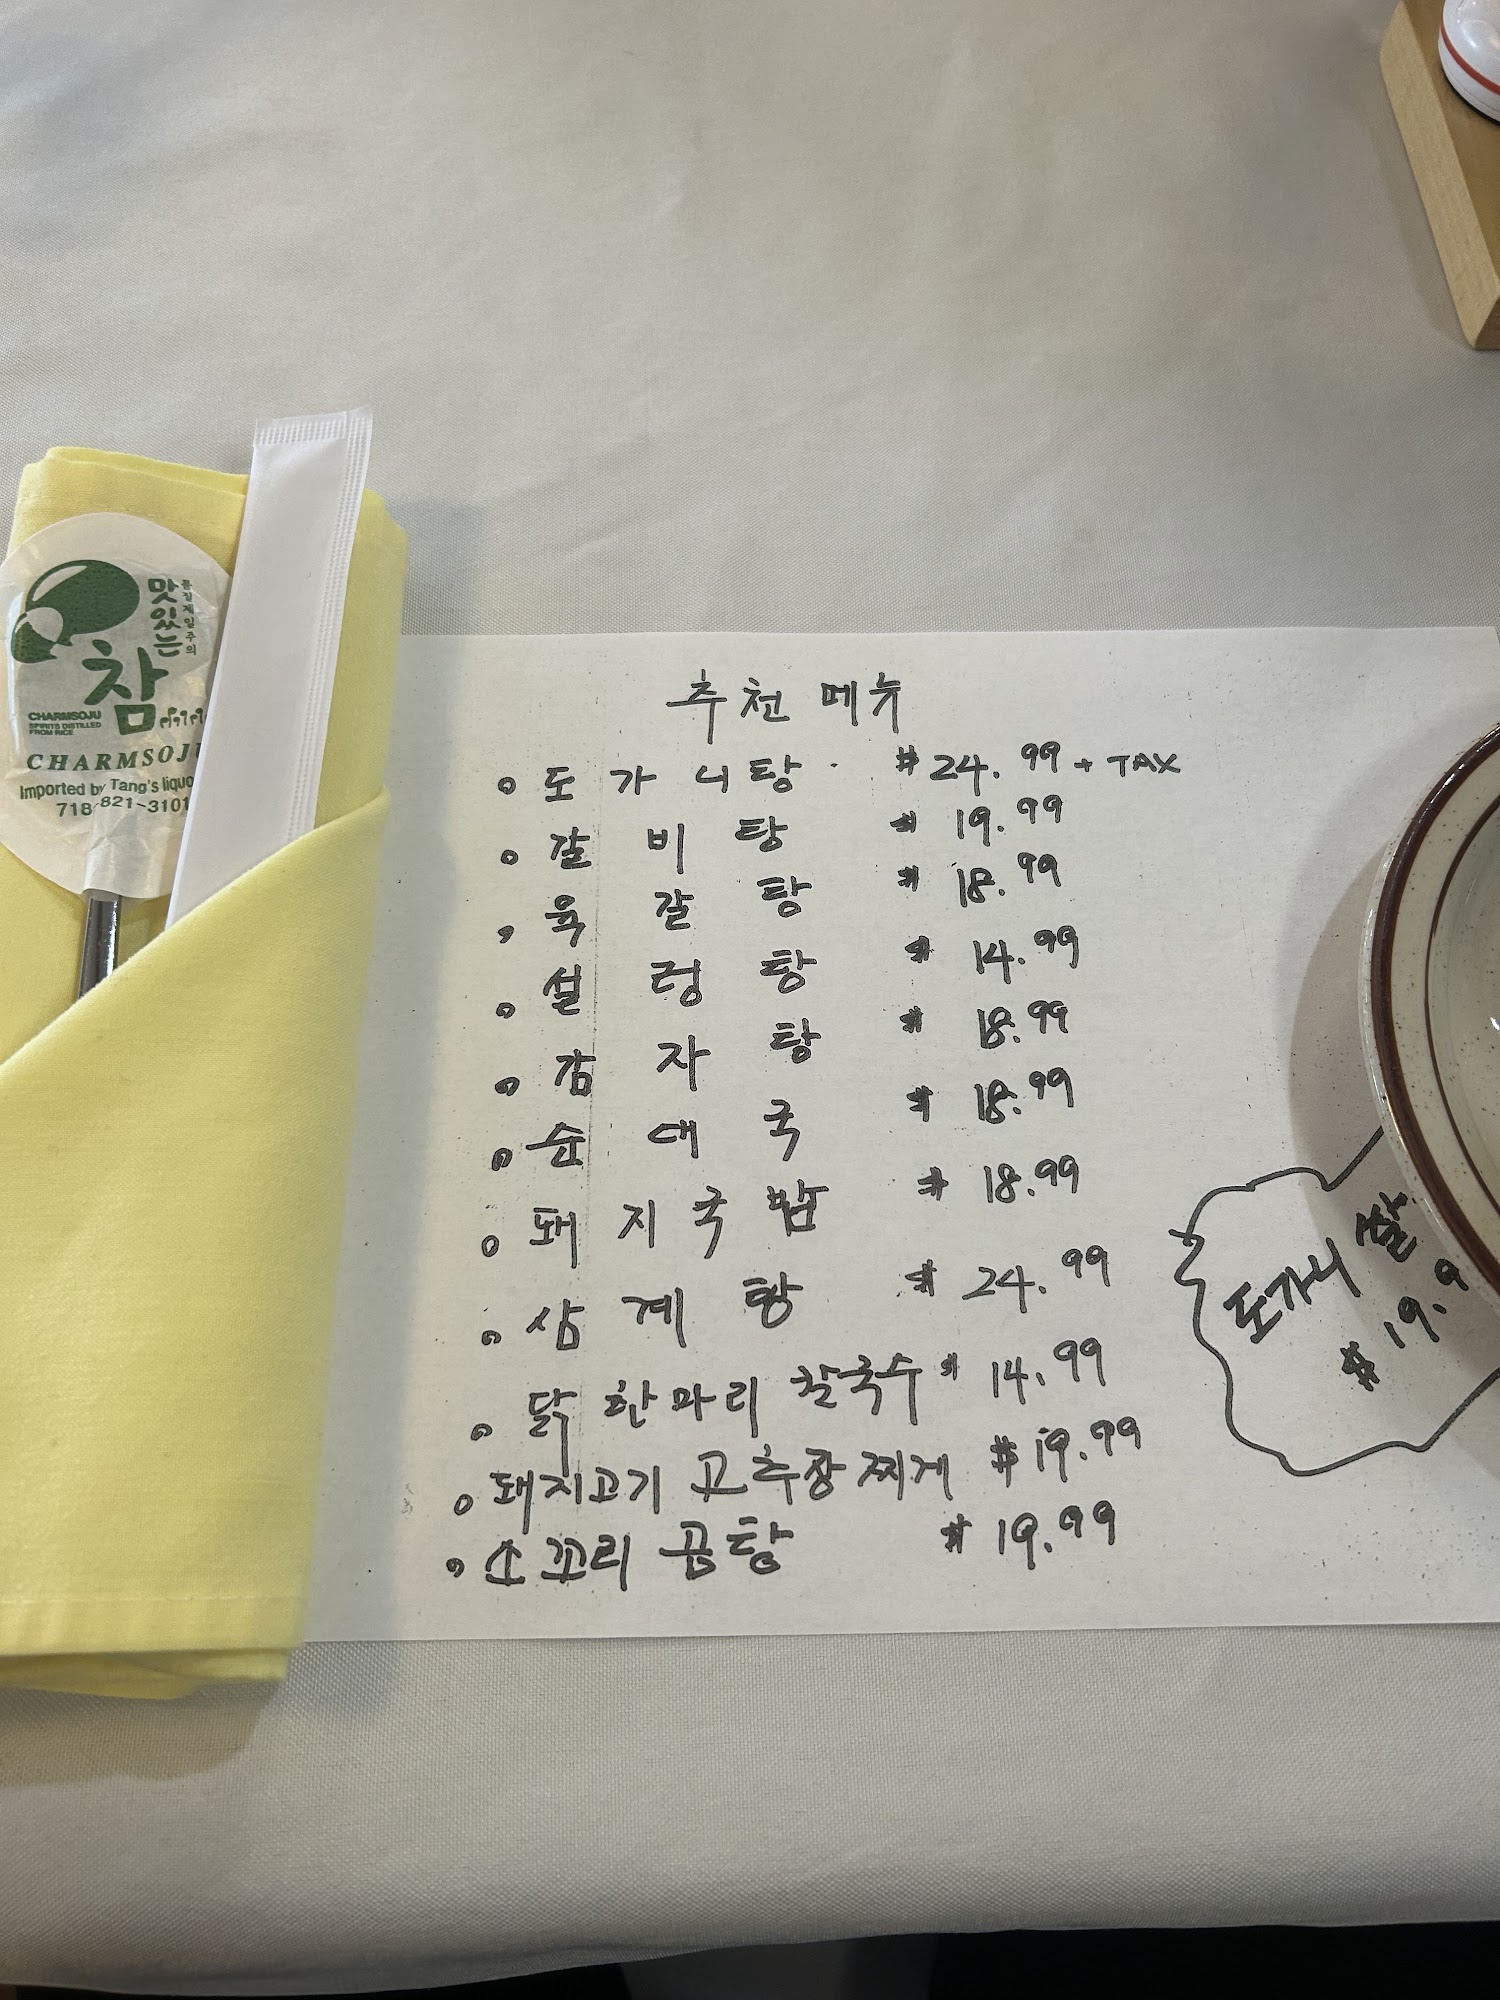 맛있는
품질제일주의
참
CHARMSOJU
SPIRITS DISTILLED
FROM RICE
CHARMSOJU
Imported by Tang's liquo
718-821-3101
추천 메뉴
도가니탕 $24.99 + TAX
갈비탕 $19.99
육갈탕 $18.99
설렁탕 $14.99
감자탕 $18.99
순대국 $18.99
돼지국밥 $18.99
삼계탕 $24.99
닭한마리 칼국수 $14.99
돼지고기 고추장찌게 $19.99
소꼬리 곰탕 $19.99
도가니
$19.9